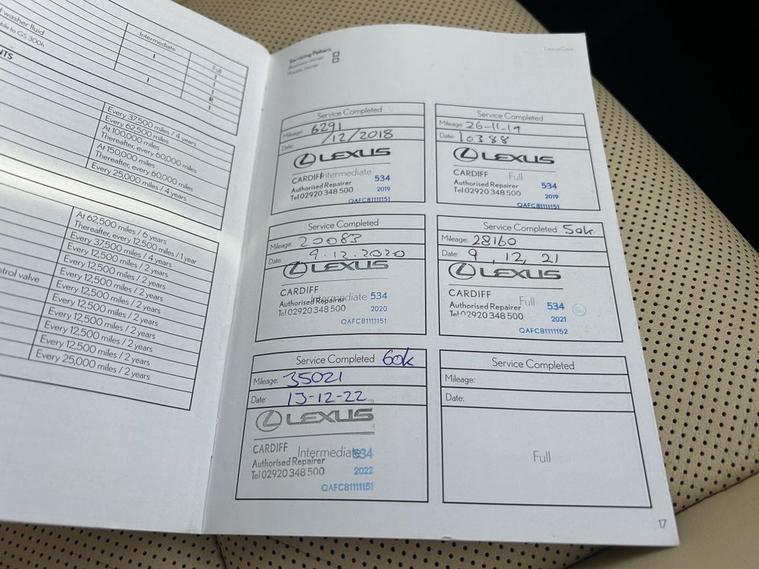 washer fluid
able to GS 300h
Intermediate
Full
I
I
I
I
R
I
NTS
Every 37,500 miles / 4 years
Every 62,500 miles
At 100,000 miles
Thereafter, every 60,000 miles
At 150,000 miles
Thereafter, every 60,000 miles
Every 25,000 miles / 4 years
At 62,500 miles / 6 years
Thereafter, every 12,500 miles / 1 year
Every 37,500 miles / 4 years
Every 12,500 miles / 2 years
Every 12,500 miles / 2 years
ntrol valve
Every 12,500 miles / 2 years
Every 12,500 miles / 2 years
Every 12,500 miles / 2 years
Every 12,500 miles / 2 years
Every 12,500 miles / 2 years
Every 25,000 miles / 2 years
Servicing Pattern
LexusCare
Service Completed
Mileage: 6291
Date: /12/2018
LEXUS
CARDIFF Intermediate
Authorised Repairer 534
Tel 02920 348 500 2019
QAFC81111151
Service Completed
Mileage: 26-11-19
Date: 10388
LEXUS
CARDIFF Full
Authorised Repairer 534
Tel 02920 348 500 2019
QAFC81111151
Service Completed
Mileage: 20083
Date: 9.12.2020
LEXUS
CARDIFF
Authorised Repairer Intermediate 534
Tel 02920 348 500 2020
QAFC81111151
Service Completed 50k
Mileage: 28160
Date: 9, 12, 21
LEXUS
CARDIFF
Authorised Repairer Full 534
Tel 02920 348 500 2021
QAFC81111152
Service Completed 60k
Mileage: 35021
Date: 13-12-22
LEXUS
CARDIFF Intermediate 534
Authorised Repairer
Tel 02920 348 500 2022
QAFC81111151
Service Completed
Mileage:
Date:
Full
17